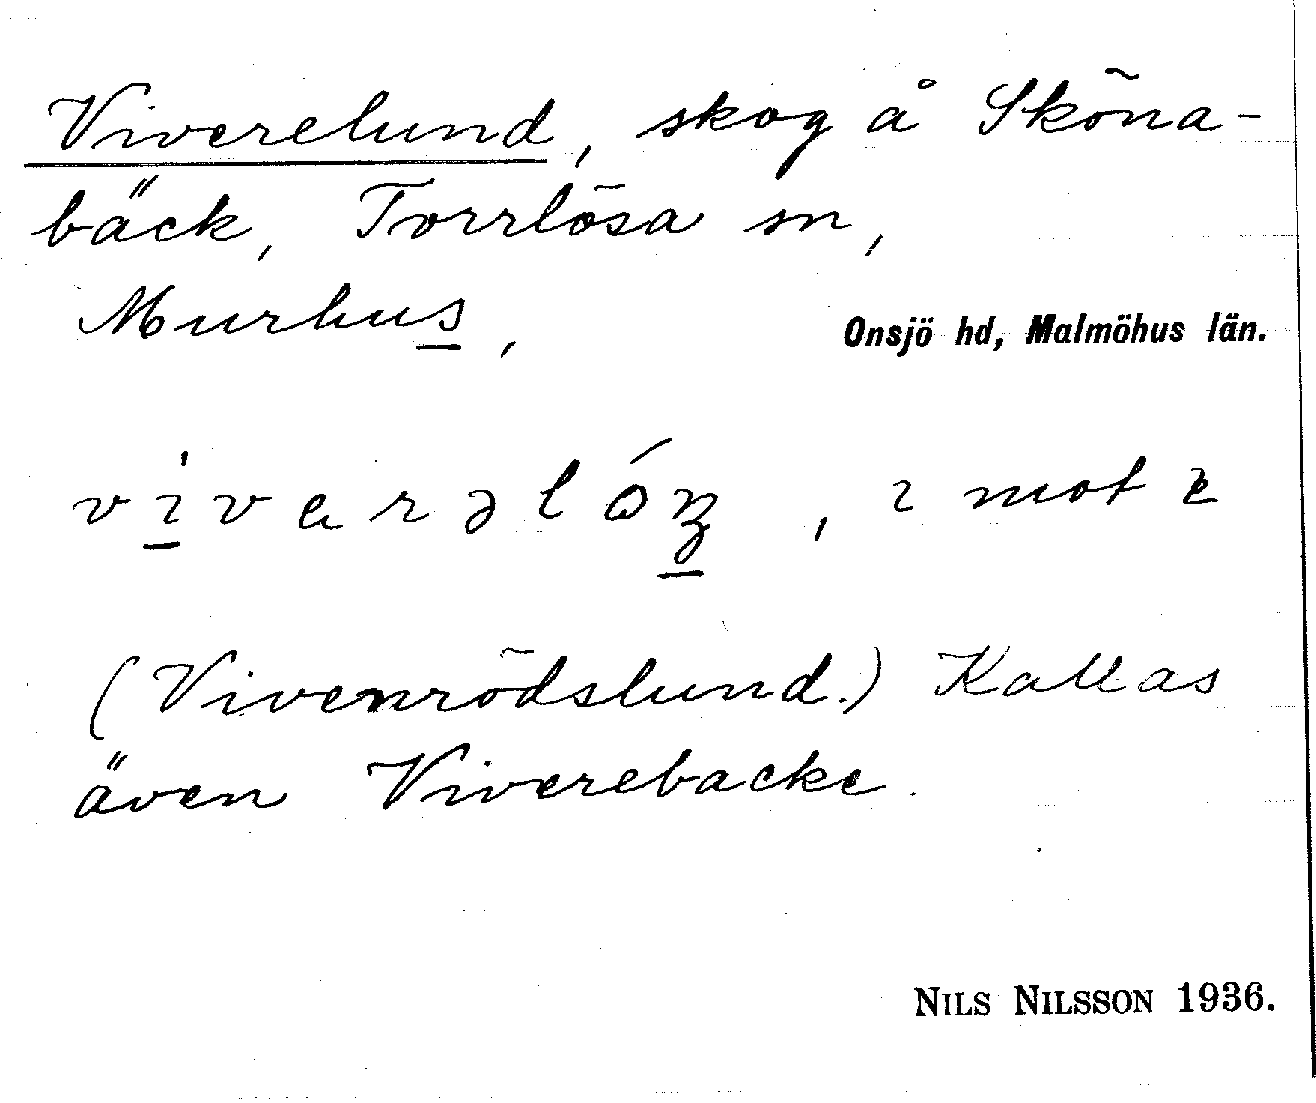 Viverelund, skog å Sköna-
bäck, Torrlösa sn,
Murhus,
Onsjö hd, Malmöhus län.
vivarəló, ı mot e
(Vivenrödslund.) Kallas
även Viverebacke.
NILS NILSSON 1936.